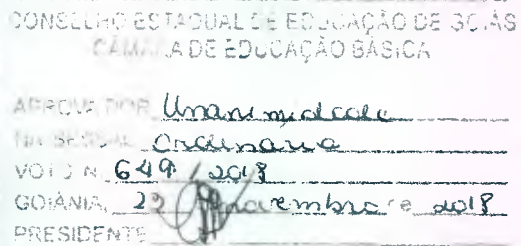 CONSELHO ESTADUAL DE EDUCAÇÃO DE GOIÁS
CÂMARA DE EDUCAÇÃO BÁSICA
APROVADO POR Unanimidade
NA SESSÃO Ordinaria
VOTO N. 649 / 2018
GOIÂNIA, 23 novembro de 2018
PRESIDENTE